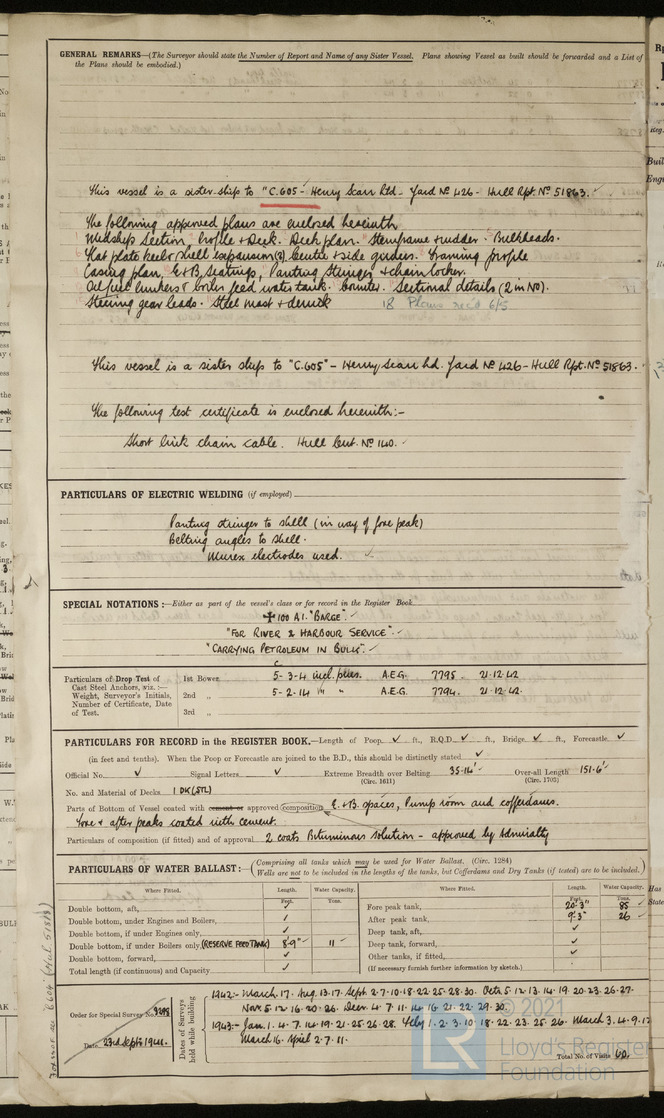 GENERAL REMARKS—(The Surveyor should state the Number of Report and Name of any Sister Vessel. Plans showing Vessel as built should be forwarded and a List of
the Plans should be embodied.)
This vessel is a sister ship to "C.605" - Henry Scarr Ltd - Yard No 426 - Hull Rpt. No 51863.
The following approved plans are enclosed herewith
Midship Section, Profile & Deck. Deck plan. Sternframe & rudder. Bulkheads.
Flat plate keel & shell expansion (2). Centre & side girders. Framing profile
Casing plan, E&B Seatings, Panting Stringer & chain locker.
Oil fuel bunkers & boiler feed water tank. Sectional details (2 in No).
Steering gear leads. Steel mast & derrick 18 Plans rec'd 6/5
This vessel is a sister ship to "C.605" - Henry Scarr Ld. Yard No 426 - Hull Rpt. No 51863.
The following test certificate is enclosed herewith:-
Short link chain cable. Hull Cert. No 140.
PARTICULARS OF ELECTRIC WELDING (if employed)
Panting stringer to shell (in way of fore peak)
Belting angles to shell.
Murex electrodes used.
SPECIAL NOTATIONS:—Either as part of the vessel's class or for record in the Register Book
✠ 100 A1. "BARGE".
"FOR RIVER & HARBOUR SERVICE"
"CARRYING PETROLEUM IN BULK".
Particulars of Drop Test of Cast Steel Anchors, viz.:— Weight, Surveyor's Initials, Number of Certificate, Date of Test.
1st Bower 5-3-4 incl. pins. A.E.G. 7795. 21.12.42
2nd „ 5-2-14 " " A.E.G. 7794. 21.12.42.
3rd „
PARTICULARS FOR RECORD in the REGISTER BOOK.—Length of Poop ✓ ft., R.Q.D. ✓ ft., Bridge ✓ ft., Forecastle ✓
(in feet and tenths). When the Poop or Forecastle are joined to the B.D., this should be distinctly stated ✓
Official No. ✓ Signal Letters ✓ Extreme Breadth over Belting 35.16' (Circ. 1611) Over-all Length 151.6' (Circ. 1703)
No. and Material of Decks 1 DK (STL)
Parts of Bottom of Vessel coated with cement or approved composition E.&B. spaces, Pump room and cofferdams.
Fore & after peaks coated with cement.
Particulars of composition (if fitted) and of approval 2 coats Bituminous solution - approved by Admiralty
PARTICULARS OF WATER BALLAST:— (Comprising all tanks which may be used for Water Ballast. (Circ. 1284)
Wells are not to be included in the lengths of the tanks, but Cofferdams and Dry Tanks (if tested) are to be included.)
Where Fitted. Length. Water Capacity. Where Fitted. Length. Water Capacity.
Feet. Tons. Feet. Tons.
Double bottom, aft, ✓ Fore peak tank, 20'3" 85 ✓
Double bottom, under Engines and Boilers, ✓ After peak tank, 9'3" 26 ✓
Double bottom, if under Engines only, ✓ Deep tank, aft, ✓
Double bottom, if under Boilers only, (RESERVE FEED TANK) 8'9" 11 ✓ Deep tank, forward, ✓
Double bottom, forward, ✓ Other tanks, if fitted, ✓
Total length (if continuous) and Capacity ✓ (If necessary furnish further information by sketch.)
Order for Special Survey No. 3298
Date 23rd Sept 1941.
Dates of Surveys held while building
1942:- March. 17. Aug. 13. 17. Sept. 2. 7. 10. 18. 22. 25. 28. 30. Oct. 5. 12. 13. 14. 19. 20. 23. 26. 27.
Nov. 5. 12. 16. 20. 26. Decr. 4. 7. 11. 14. 16. 21. 22. 29. 30.
1943:- Jan. 1. 4. 7. 14. 19. 21. 25. 26. 28. Feby 1. 2. 3. 10. 18. 22. 23. 25. 26. March 3. 4. 9. 12
March 16. April 2. 7. 11.
Total No. of Visits 60.
© 2021
LR
Lloyd's Register
Foundation